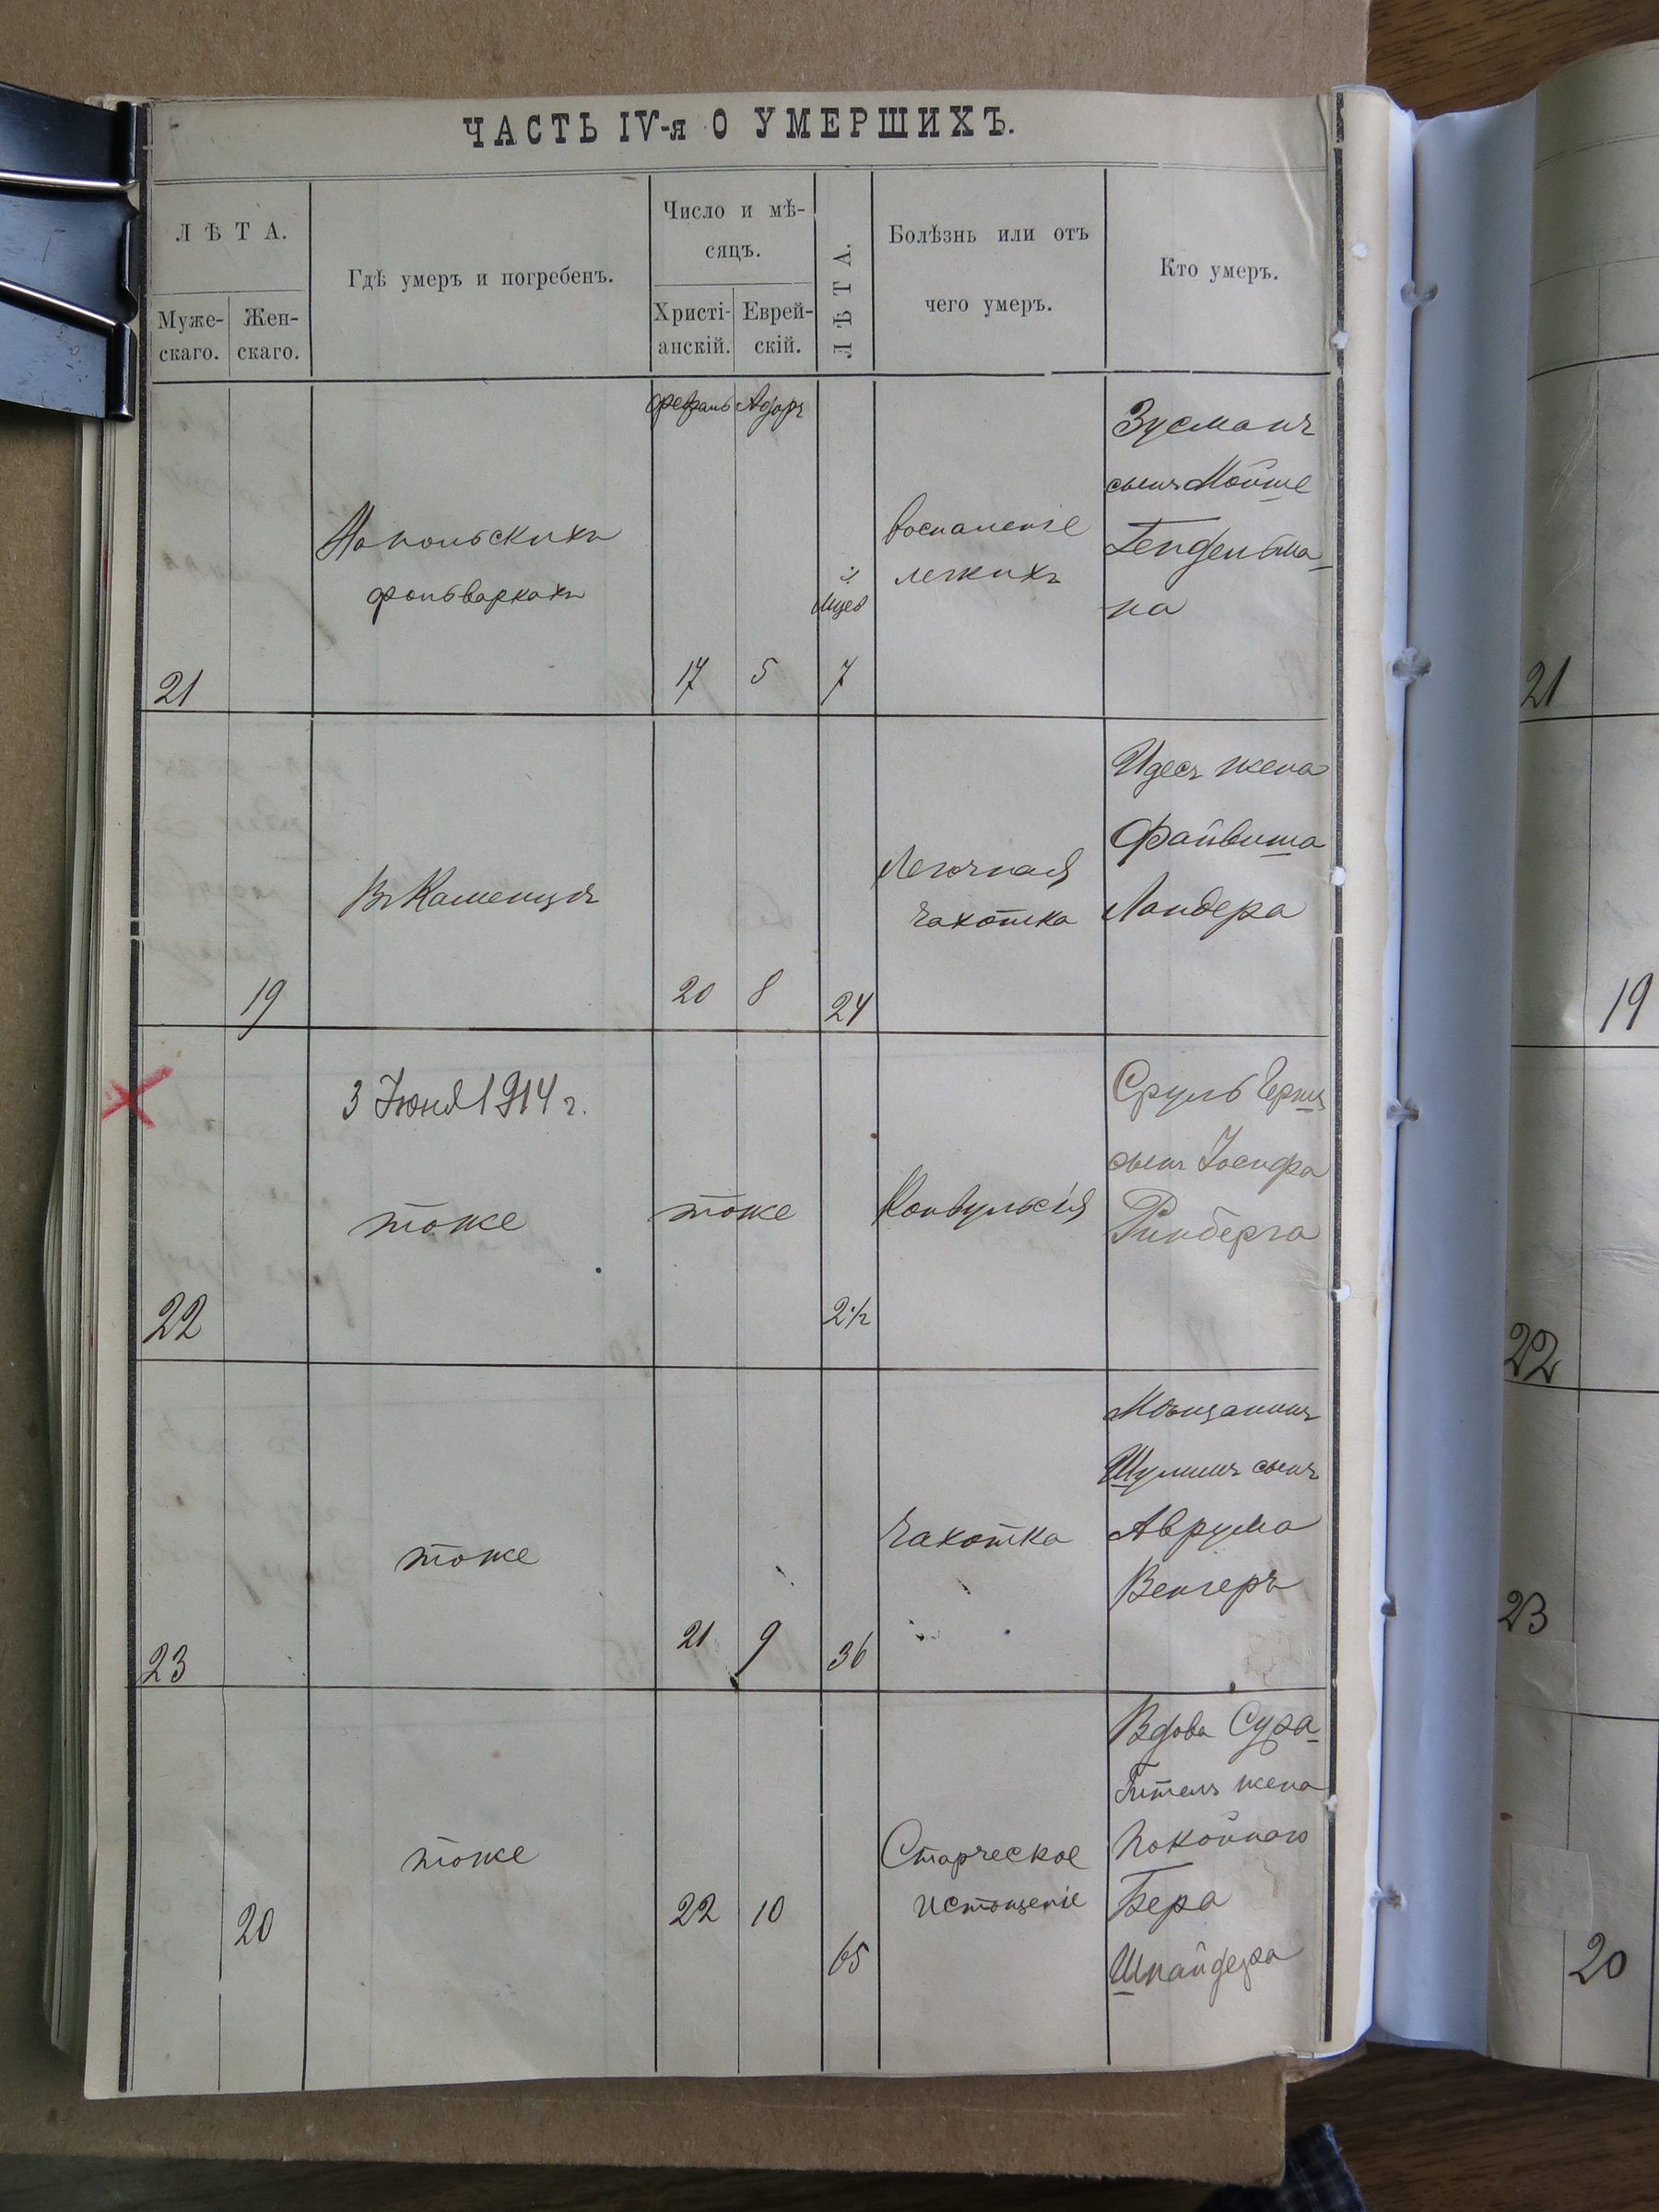 ЧАСТЬ IV-я О УМЕРШИХЪ.
ЛѢТА.
Муже-
скаго.
Жен-
скаго.
Гдѣ умеръ и погребенъ.
Число и мѣ-
сяцъ.
Христі-
анскій.
Еврей-
скій.
ЛѢТА.
Болѣзнь или отъ
чего умеръ.
Кто умеръ.
Адаръ
21
польскихъ
фольваркахъ
17
5
7
воспаленіе
легкихъ
Зусманъ
сынъ Мойше
Гендельма-
на
19
Въ Каменцѣ
20
8
24
Легочная
чахотка
Идесъ жена
Файвиша
Ландера
22
3 Июня 1914 г.
тоже
тоже
2 1/2
Конвульсія
Сруль Герш
сынъ Іосифа
Ринберга
23
тоже
21
9
36
Чахотка
Мѣщанинъ
Шулимъ сынъ
Аврума
Венгеръ
20
тоже
22
10
65
Старческое
истощеніе
Вдова Сура-
Гитель жена
покойнаго
Бера
Шнайдера
21
19
22
23
20